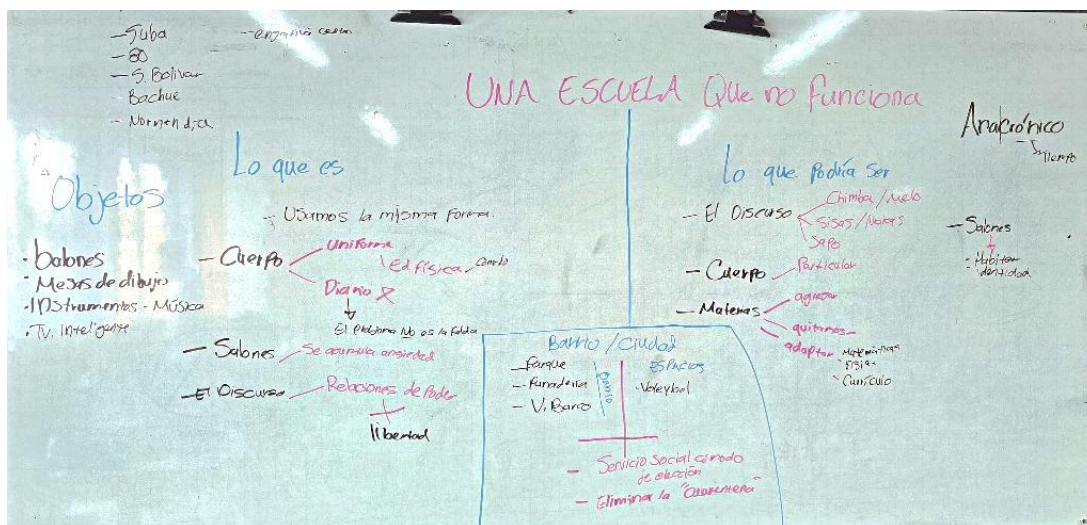 - Suba
- 80
- S. Bolivar
Bachue
- Normandia
UNA ESCUELA Que no Funciona
Anacrónico
Tiempo
Objetos
· balones
· Mesas de dibujo
· Instrumentos - Música
· Tv. Inteligente
Lo que es
Usamos la misma forma.
- Cuerpo
Uniforme
Ed física
Diario X
El problema No es la Falda
- Salones
Se acumula ansiedad
- El Discurso
Relaciones de Poder
libertad
Lo que Podría ser
- El Discurso
Chimba / Melo
Sisas / Ñokas
Sapo
- Cuerpo
Particular
- Materias
agregar
quitamos
adaptar
Matemáticas
Física
Currículo
- Salones
- Habitar
- identidad
Barrio / Ciudad
- Parque
- Panadería
- V. Barrio
Barrio
ESPACIOS
· Voleybol
- Servicio Social cómodo
de elección
- Eliminar la "Cuarentena"